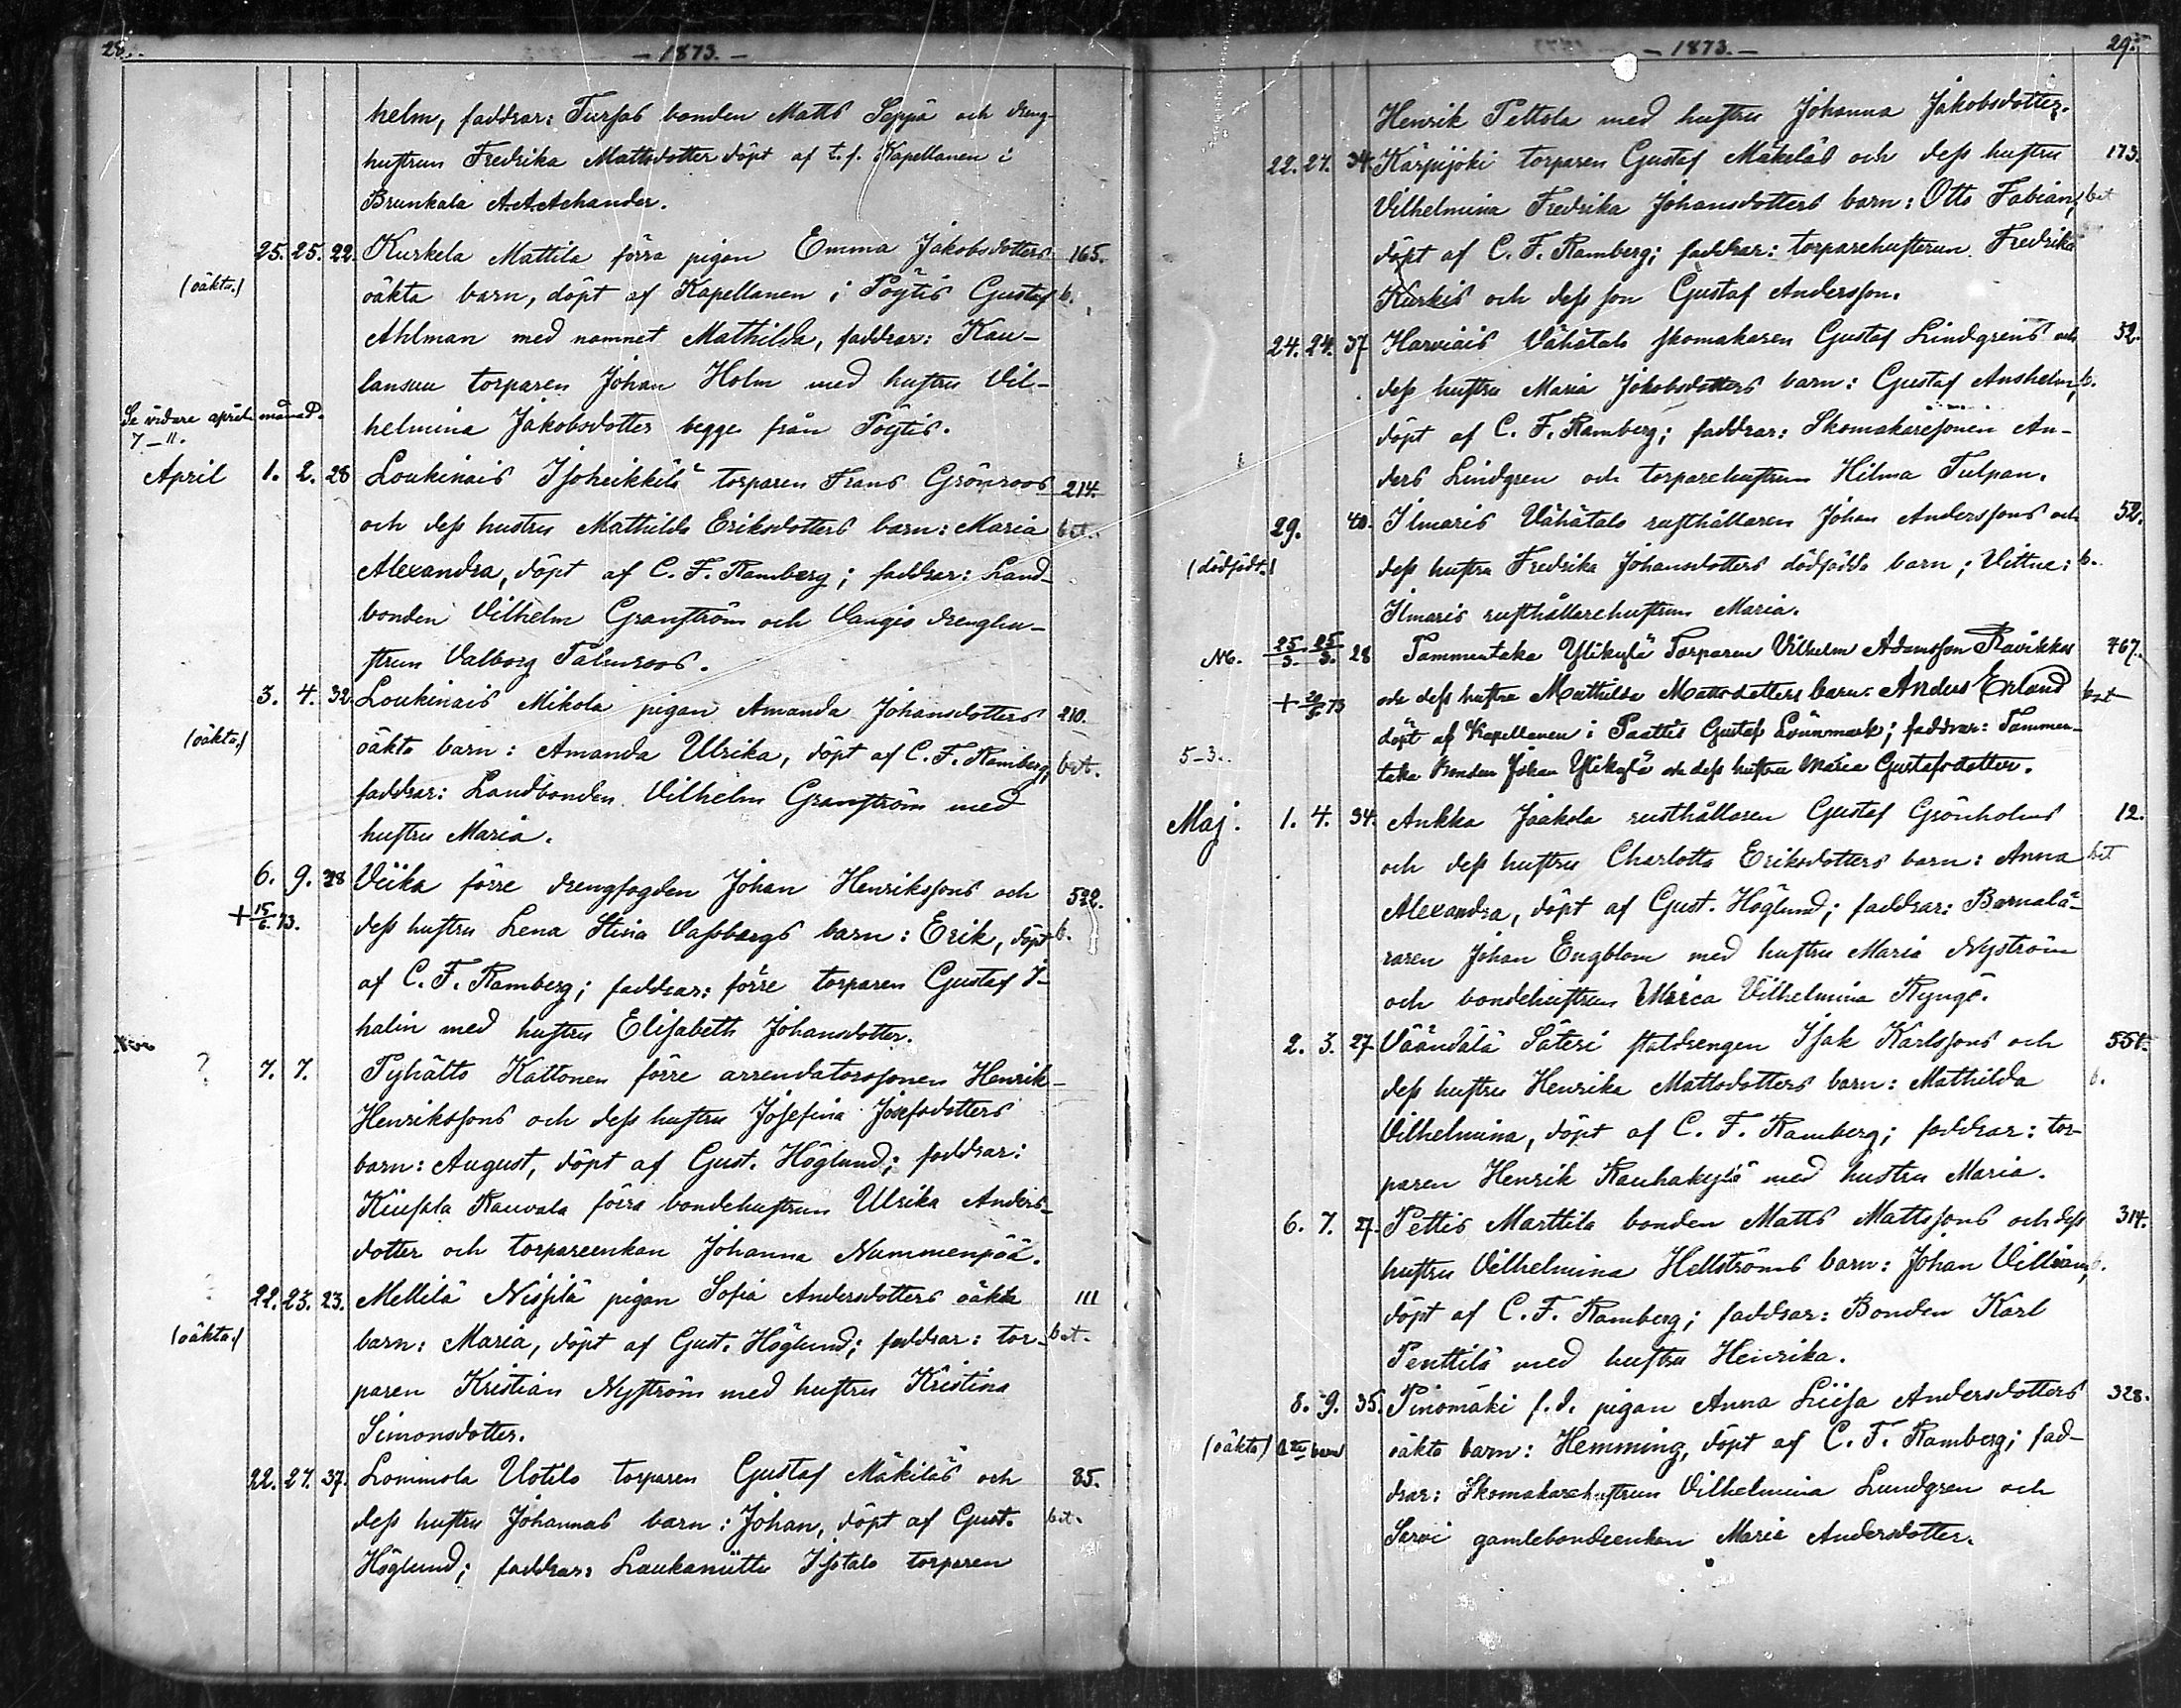 28.
- 1873. -
helm, faddrar: Tursas bonden Matts Seppä och dreng-
hustrun Fredrika Mattsdotter döpt af t.f. Kapellanen i
Brunkala A.A. Achander.
25. 25. 22. Kurkela Mattila förra pigan Emma Jakobsdotters 165.
(oäkta.) oäkta barn, döpt af Kapellanen i Pöytis Gustaf b.
Ahlman med namnet Mathilda, faddrar: Kau-
lansuu torparen Johan Holm med hustru Vil-
Se vidare april månad.
7-11.
helmina Jakobsdotter begge från Pöytis.
April 1. 2. 28 Loukinais Isoheikkilä torparen Frans Grönroos 214.
och dess hustru Mathilda Eriksdotters barn: Maria bet.
Alexandra, döpt af C. F. Ramberg; faddrar: Land-
bonden Vilhelm Granström och Vangio drenghu-
strun Valborg Palmroos.
3. 4. 32. Loukinais Mikola pigan Amanda Johansdotters 210.
(oäkta.) oäkta barn: Amanda Ulrika, döpt af C. F. Ramberg, bet.
faddrar: Landbonden Vilhelm Granström med
hustru Maria.
6. 9. 38 Viika förre drengfogden Johan Henrikssons och 522.
+ 15/6 73. dess hustru Lena Stina Vassbergs barn: Erik, döpt b.
af C. F. Ramberg; faddrar: förre torparen Gustaf I-
halin med hustru Elisabeth Johansdotter.
? 7. 7. Pyhätto Kattonen förre arrendatorssonen Henrik
Henrikssons och dess hustru Josefina Josefsdotters
barn: August, döpt af Gust. Höglund; faddrar:
Kinsala Rauvala förra bondehustrun Ulrika Anders-
dotter och torpareenkan Johanna Nummenpää.
22. 23. 23. Mellilä Nispilä pigan Sofia Andersdotters oäkta 111
(oäkta.) barn: Maria, döpt af Gust. Höglund; faddrar: tor- bet.
paren Kristian Nyström med hustru Kristina
Simonsdotter.
22. 27. 37. Lommola Uotila torparen Gustaf Mäkiläs och 85.
dess hustru Johannas barn: Johan, döpt af Gust. bet.
Höglund; faddrar: Laukaniittu Isotalo torparen
- 1873. -
29.
Henrik Pettola med hustru Johanna Jakobsdotter.
22. 27. 34. Karpijoki torparen Gustaf Mäkeläs och dess hustru 173.
Vilhelmina Fredrika Johansdotters barn: Otto Fabian, bet
döpt af C. F. Ramberg; faddrar: torparehustrun Fredrika
Kurkis och dess son Gustaf Andersson.
24. 24. 37 Harviais Vähätalo skomakaren Gustaf Lindgrens och 52.
dess hustru Maria Jakobsdotters barn: Gustaf Anshelm, b.
döpt af C. F. Ramberg; faddrar: Skomakaresonen An-
ders Lindgren och torparehustrun Hilma Tulpan.
29. 40. Ilmaris Vähätalo rusthållaren Johan Anderssons och 52.
(dödfödt.) dess hustru Fredrika Johansdotters dödfödda barn; Vittne: b.
Ilmaris rusthållarehustrun Maria.
N6. 25/3. 25/3. 28 Tammentaka Ylikylä Torparen Vilhelm Adamsson Ravikkas 467.
+ 20/5 73 och dess hustru Mathilda Mattsdotters barn: Anders Erland bet
döpt af Kapellanen i Paattis Gustaf Lönnmark; faddrar: Tammen-
5-3. taka Bonden Johan Ylikylä och dess hustru Maria Gustafsdotter.
Maj. 1. 4. 34. Ankka Jaakola rusthållaren Gustaf Grönholms 12.
och dess hustru Charlotta Eriksdotters barn: Anna bet
Alexandra, döpt af Gust. Höglund; faddrar: Barnalä-
raren Johan Engblom med hustru Maria Nyström
och bondehustrun Maria Vilhelmina Ryngö.
2. 3. 27 Väändälä Säteri stalldrengen Isak Karlssons och 551.
dess hustru Henrika Mattsdotters barn: Mathilda b.
Vilhelmina, döpt af C. F. Ramberg; faddrar: tor-
paren Henrik Rauhakylä med hustru Maria.
6. 7. 27. Pettis Marttila bonden Matts Mattssons och dess 314.
hustru Vilhelmina Hellströms barn: Johan Villiam, b.
döpt af C. F. Ramberg; faddrar: Bonden Karl
Penttilä med hustru Henrika.
8. 9. 35. Pinomäki f.d. pigan Anna Liisa Andersdotters 328.
(oäkta) barn oäkta barn: Hemming, döpt af C. F. Ramberg; fad-
drar: Skomakarehustrun Vilhelmina Lundgren och
Sarvi gamlebondeenkan Maria Andersdotter.